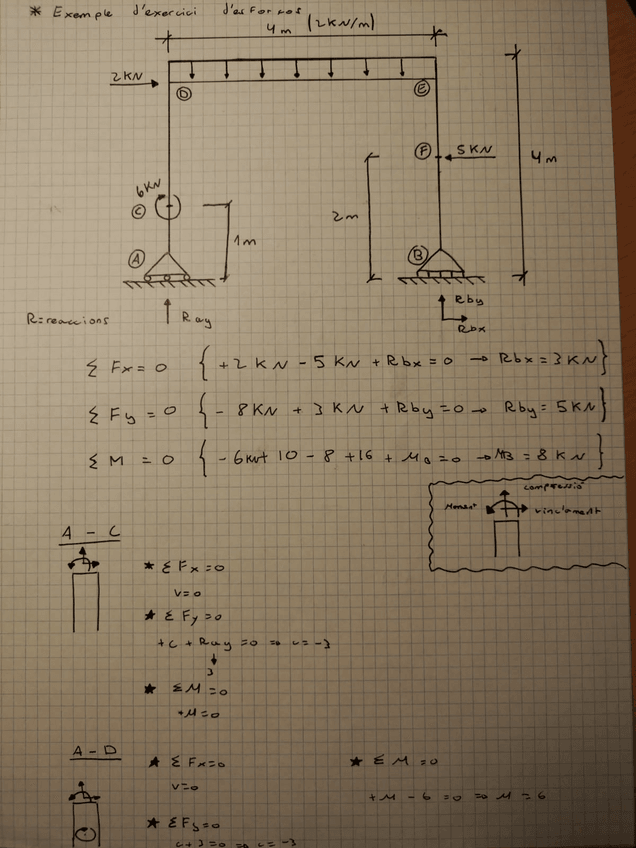 * Exemple d'exercici d'esforços
4m (2KN/m)
2KN
D
E
F
5KN
4m
6KN
C
2m
1m
A
B
R=reaccions
Ray
Rby
Rbx
Σ Fx=0 { +2 KN - 5 KN + Rbx = 0 → Rbx = 3 KN }
Σ Fy = 0 { - 8KN + 3 KN + Rby = 0 → Rby = 5KN }
Σ M = 0 { - 6KN + 10 - 8 + 16 + MB = 0 → MB = 8 KN }
compressió
Moment
A - C
* Σ Fx=0
V=0
* Σ Fy=0
+C + Ray = 0 ⇒ C = -3
3
* ΣM=0
+M=0
A - D
* Σ Fx=0
V=0
* Σ M=0
+M - 6 = 0 ⇒ M = 6
* Σ Fy=0
C+3=0 ⇒ C=-3